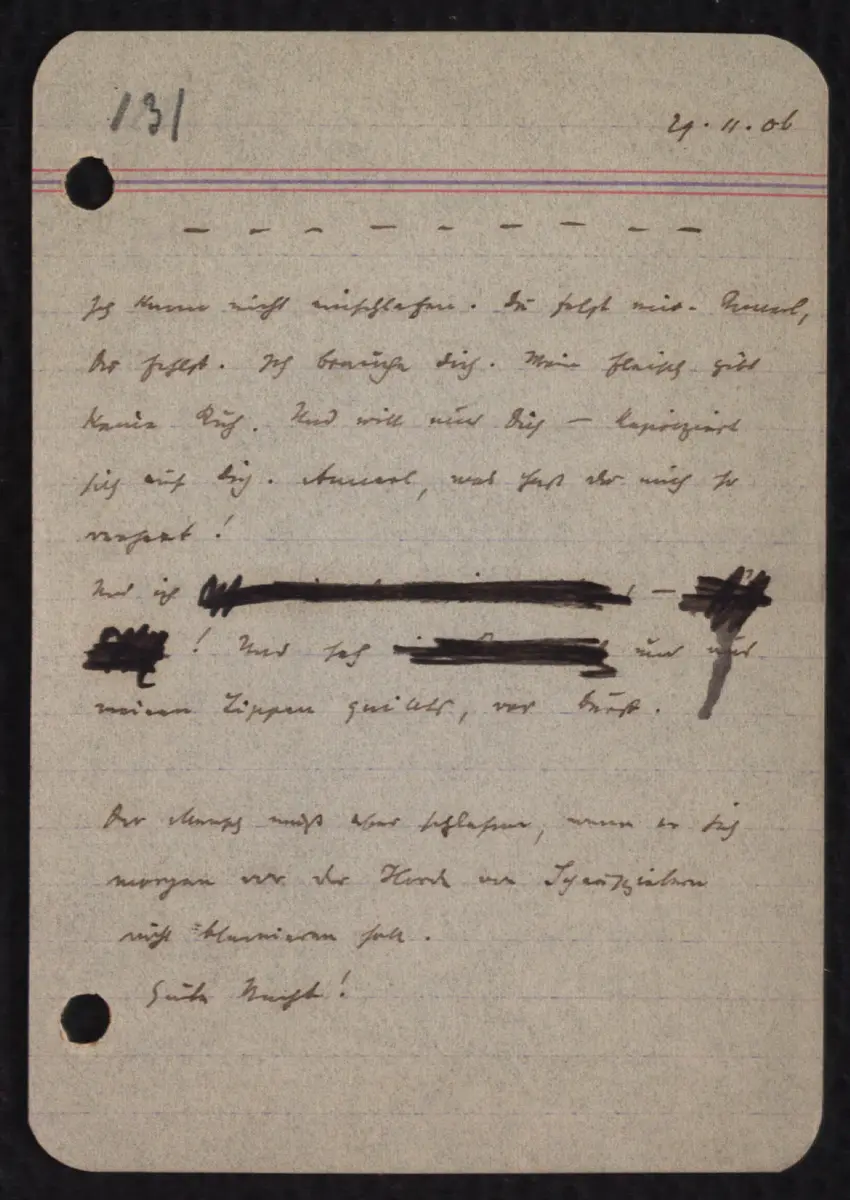 131
29.11.06
– – – – – – – – –
Ich kann nicht einschlafen. Du fehlst mir. Annerl,
Du fehlst. Ich brauche Dich. Mein Fleisch gibt
keine Ruh. Und will nur Dich – kapriziert
sich auf Dich. Annerl, was hast du mich so
verhext!
Und ich –
! Und ich und
meinen Lippen quillts, vor Durst.
Der Mensch muß aber schlafen, wenn er sich
morgen vor der Horde von
nicht blamieren soll.
Gute Nacht!